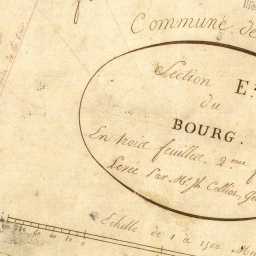 Commune de
Section E
du
BOURG.
En trois feuilles. 2.me
Levée Par Mr.
Echelle de 1 à